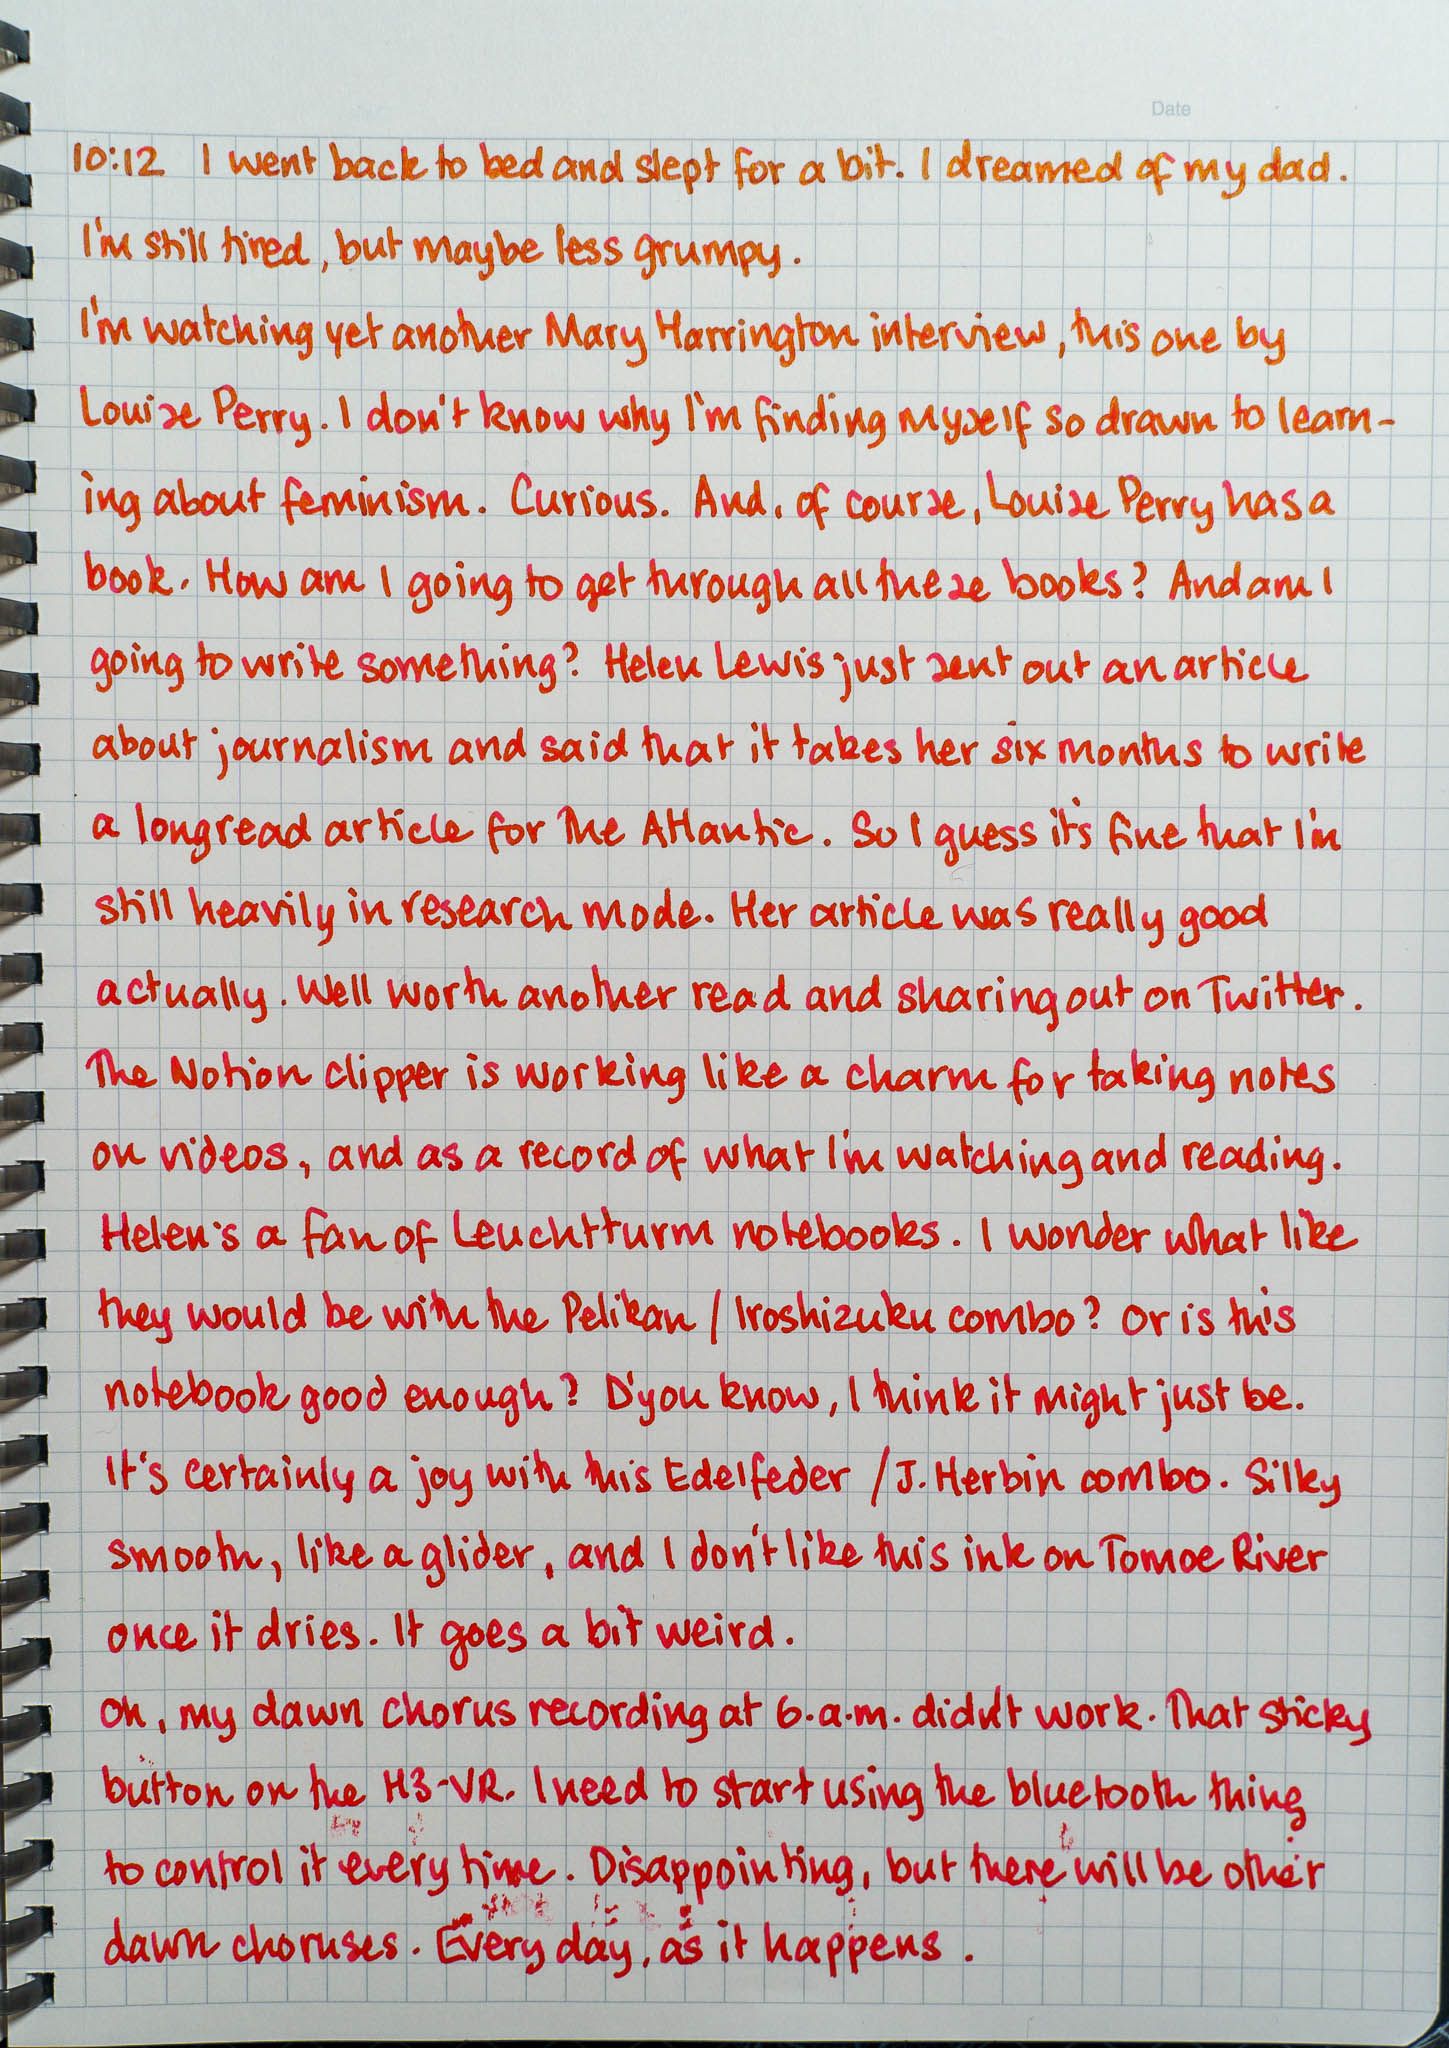 Date
10:12 I went back to bed and slept for a bit. I dreamed of my dad.
I'm still tired, but maybe less grumpy.
I'm watching yet another Mary Harrington interview, this one by
Louise Perry. I don't know why I'm finding myself so drawn to learn-
ing about feminism. Curious. And, of course, Louise Perry has a
book. How am I going to get through all these books? And am I
going to write something? Helen Lewis just sent out an article
about journalism and said that it takes her six months to write
a longread article for The Atlantic. So I guess it's fine that I'm
still heavily in research mode. Her article was really good
actually. Well worth another read and sharing out on Twitter.
The Notion clipper is working like a charm for taking notes
on videos, and as a record of what I'm watching and reading.
Helen's a fan of Leuchtturm notebooks. I wonder what like
they would be with the Pelikan / Iroshizuku combo? Or is this
notebook good enough? D'you know, I think it might just be.
It's certainly a joy with this Edelfeder / J. Herbin combo. Silky
smooth, like a glider, and I don't like this ink on Tomoe River
once it dries. It goes a bit weird.
Oh, my dawn chorus recording at 6.a.m. didn't work. That sticky
button on the H3-VR. I need to start using the bluetooth thing
to control it every time. Disappointing, but there will be other
dawn choruses. Every day, as it happens.